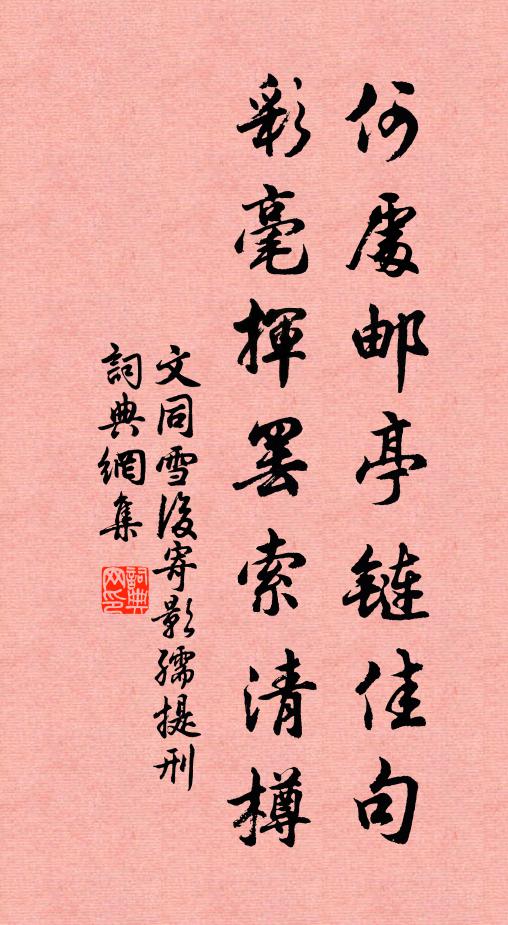 何處邮亭鏈佳句
彩毫揮罢索清樽
文同雪後寄影孺提刑
詞典網集
詞典网印